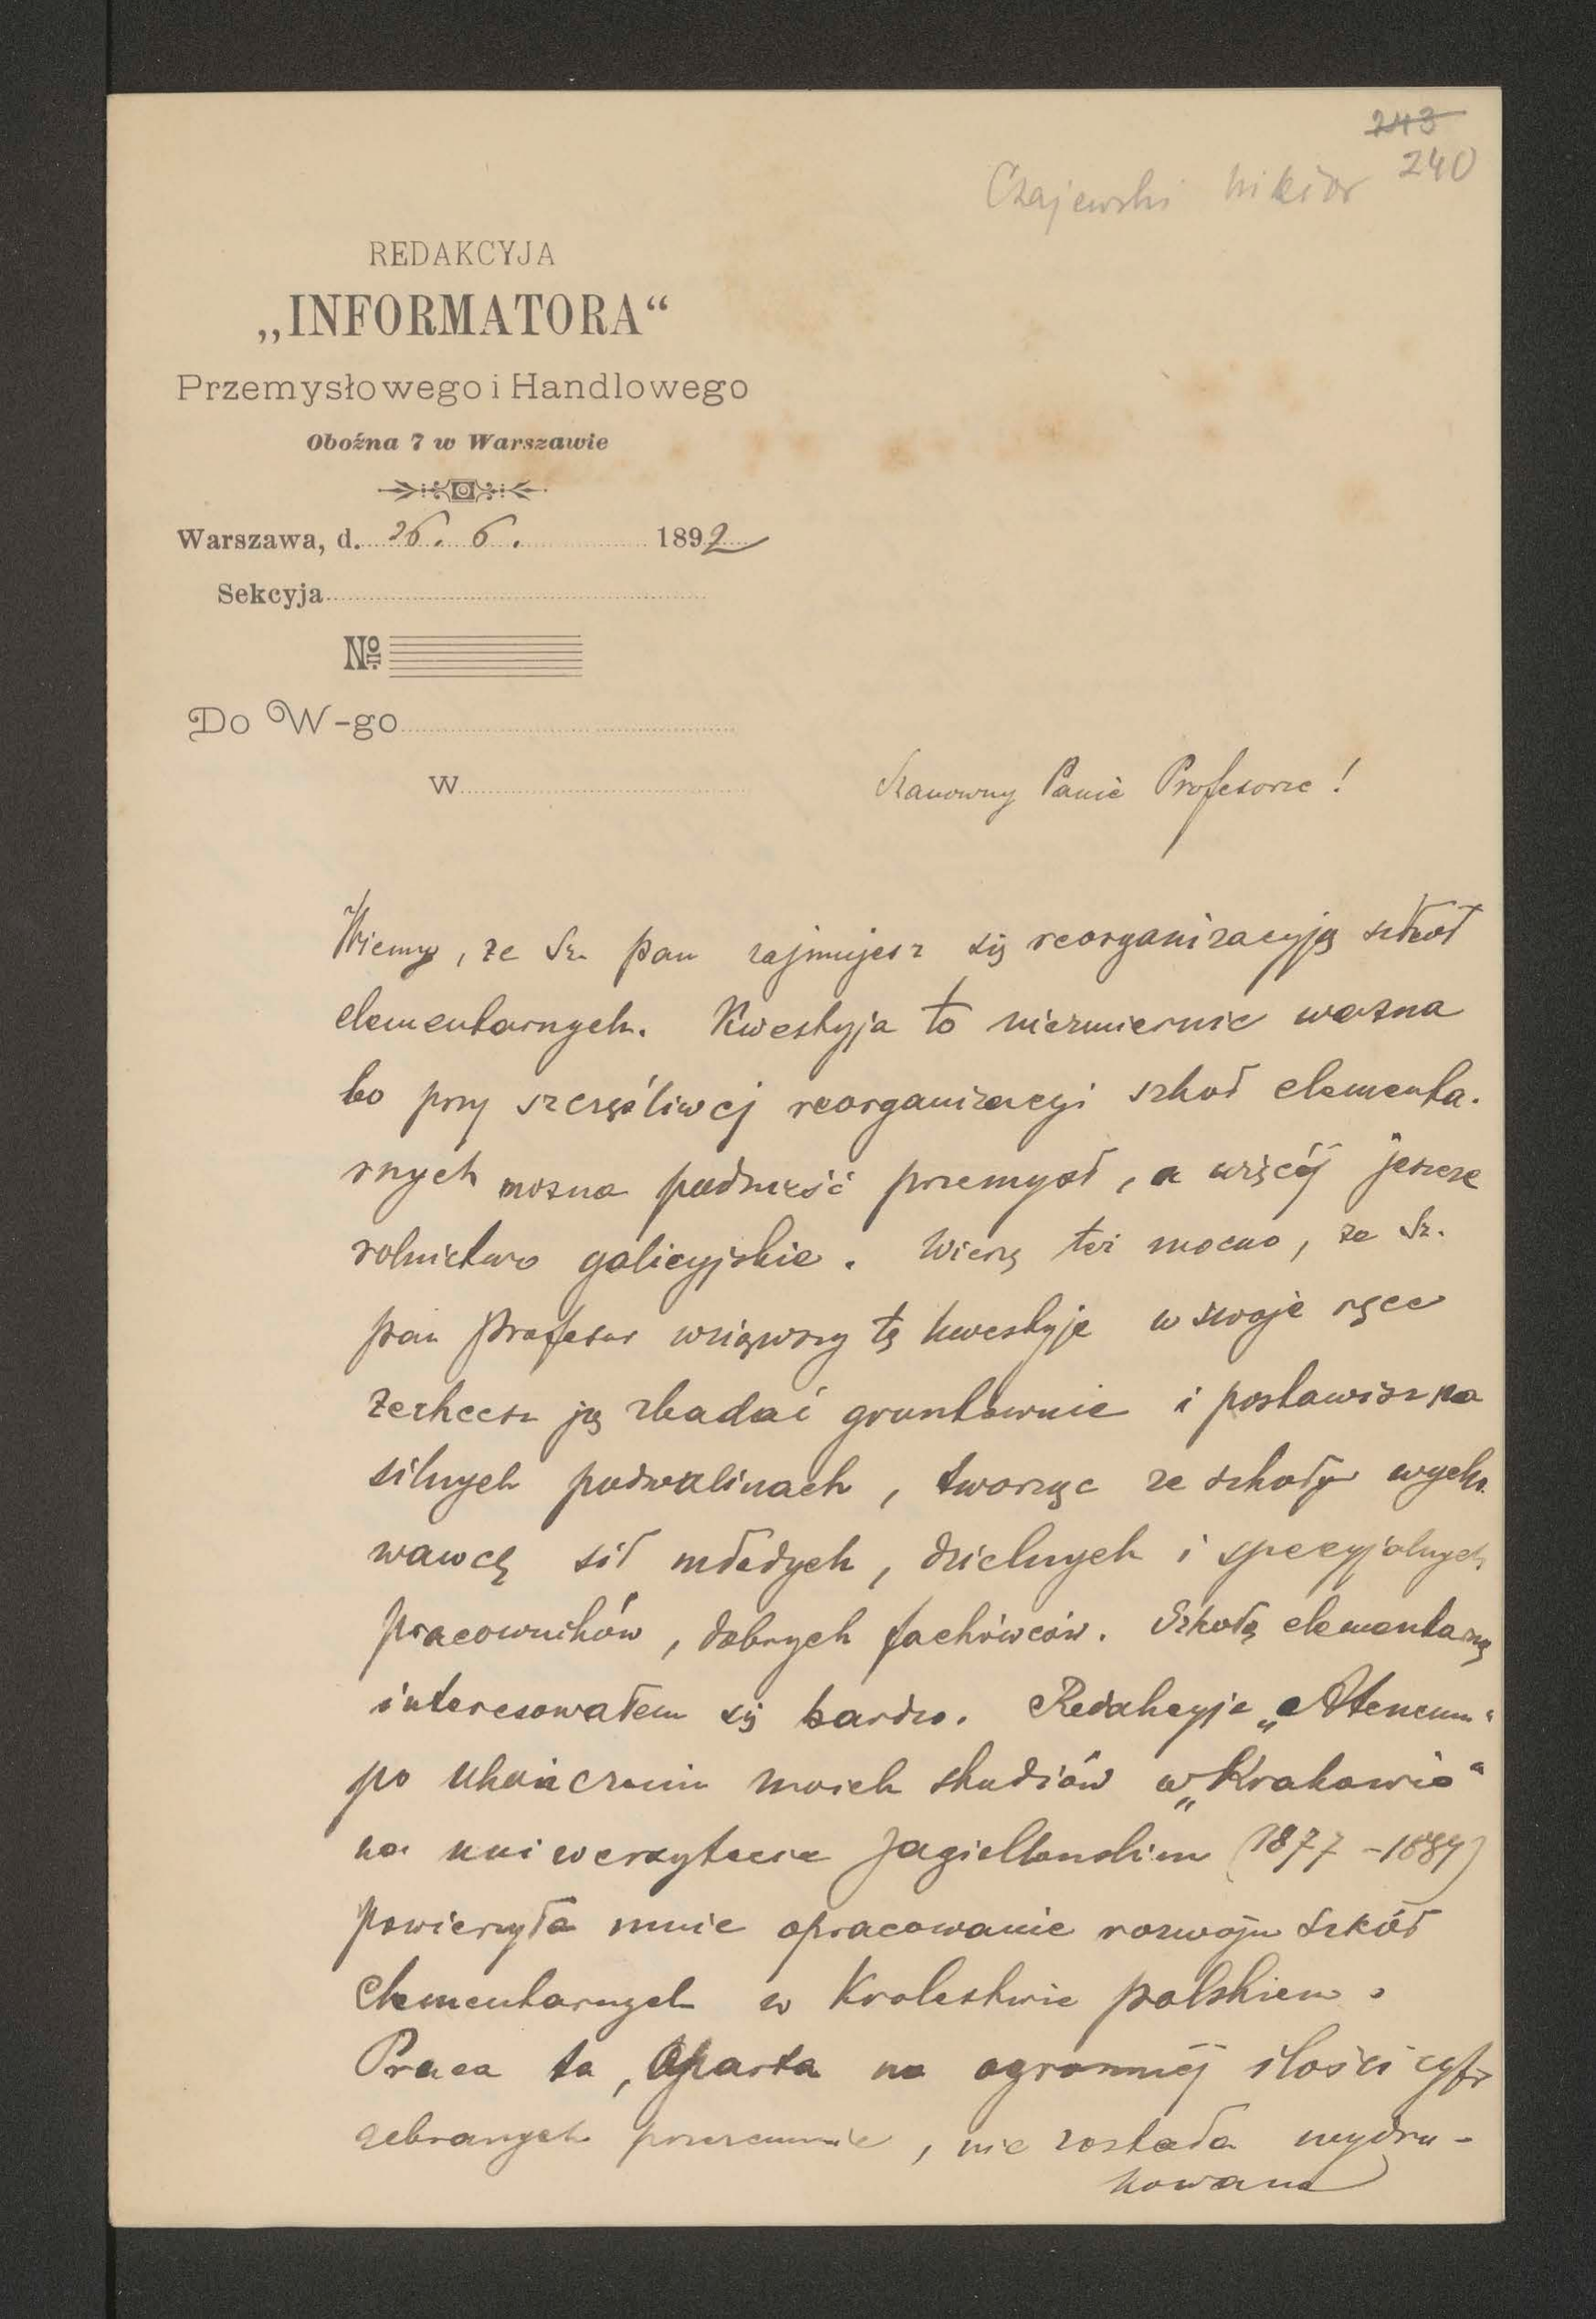 243
240
Czajewski Wiktor
REDAKCYJA
„INFORMATORA“
Przemysłowego i Handlowego
Oboźna 7 w Warszawie
Warszawa, d. 26. 6. 1892
Sekcyja
№
Do W-go
w
Szanowny Panie Profesorze!
Wiemy, ze Sz. pan zajmujesz się reorganizacyją szkoł
elementarnych. Kwestyja to niezmiernie wazna
bo przy szczęśliwej reorganizacyi szkoł elementa-
rnych mozna podnieść przemysł, a więcéj jeszcze
rolnictwo galicyjskie. Wierzę też mocno, ze Sz.
pan Profesor wziąwszy tę kwestyje w swoje ręce
zechcesz ją zbadać gruntownie i postawisz na
silnych podwalinach, tworząc ze szkoły wycho
wawcę sił młodych, dzielnych i specyjalnych
pracowników, dobrych fachowców. Szkołą elementarną
interesowałem się bardzo. Redakcyja „Ateneum“
po ukończeniu moich studiów w „Krakowie“
na uniwersytecie Jagiellonskim (1877-1884)
powierzyła mnie opracowanie rozwoju szkół
elementarnych w Krolestwie polskiem.
Praca ta, oparta na ogromnéj ilości cyfr
zebranych przezemnie, nie została wydru-
kowana